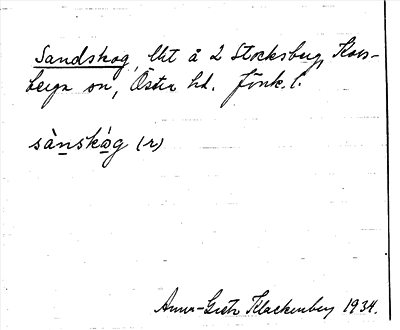 Sandskog, lht å 2 Stocksberg, Kors-
berga sn, Östra hd. Jönk. l.
sànskò̱g (r)
Anna-Greta Klackenberg 1934.